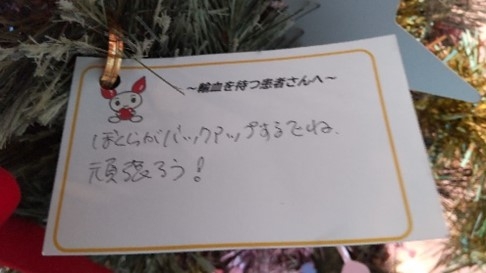 ～輸血を待つ患者さんへ～
ぼくらがバックアップするでね、
頑張ろう！